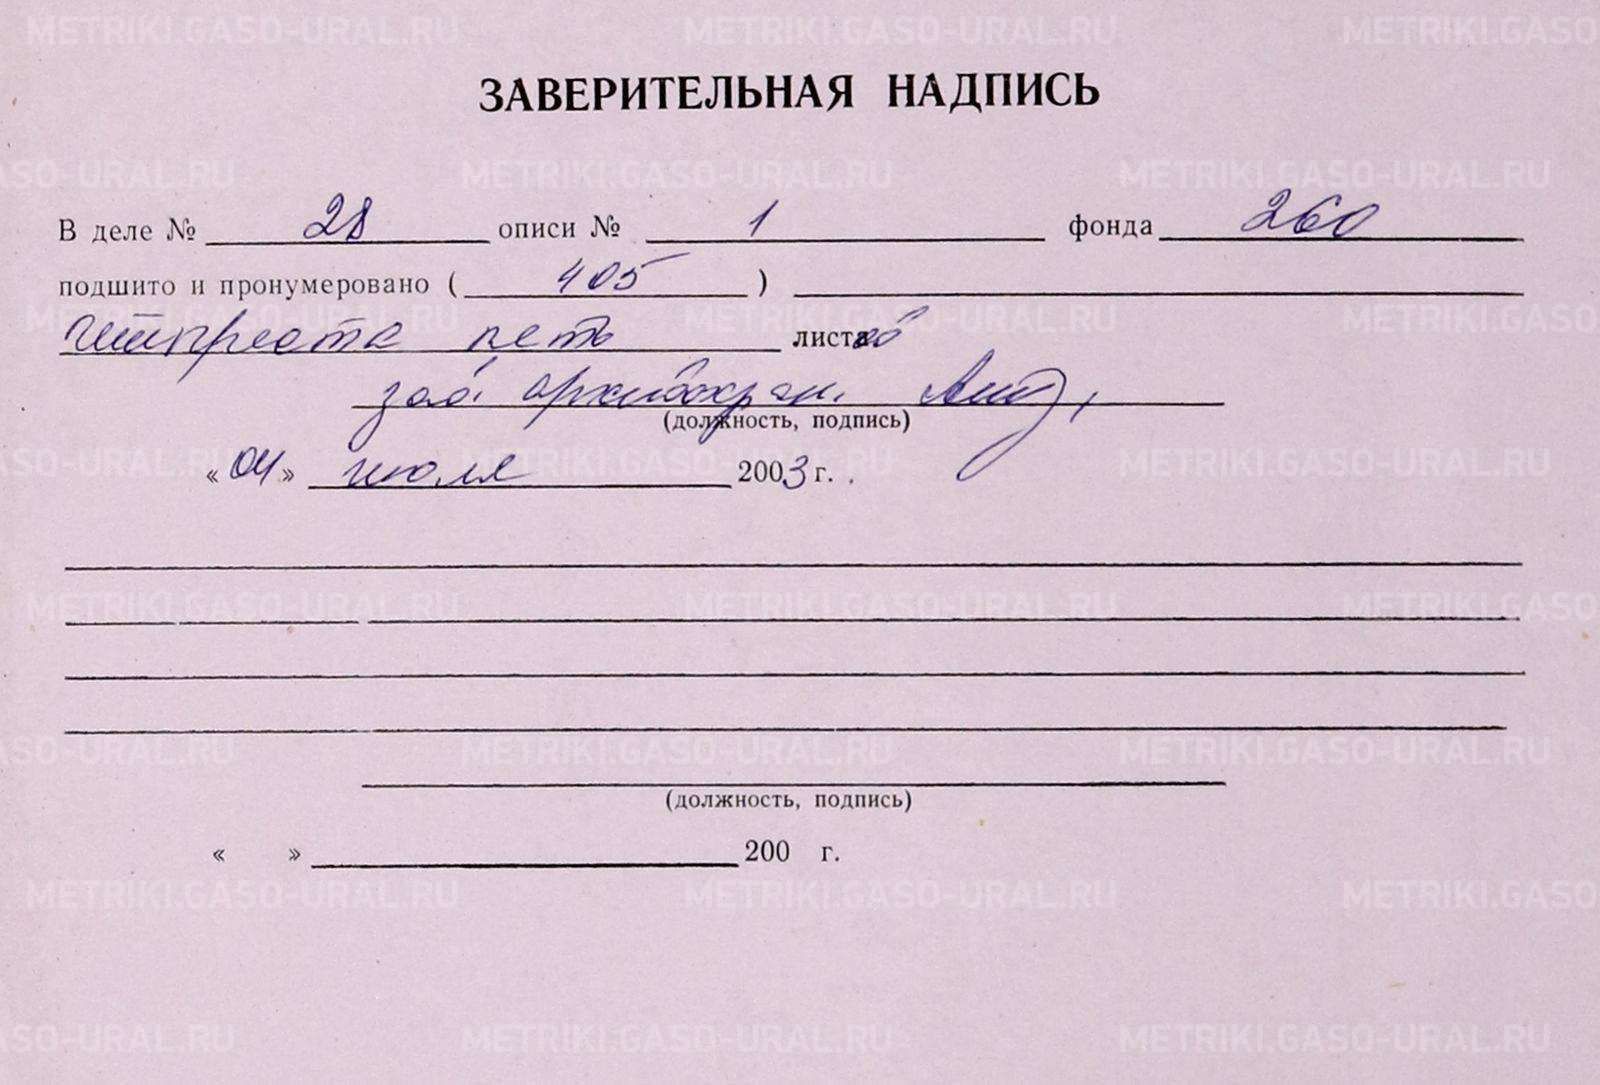 ЗАВЕРИТЕЛЬНАЯ НАДПИСЬ
В деле № 28 описи № 1 фонда 260
подшито и пронумеровано ( 405 )
четыреста пять листов
зав. архивохран.
(должность, подпись)
« 04 » июля 2003 г.
(должность, подпись)
« » 200 г.
METRIKI.GASO-URAL.RU